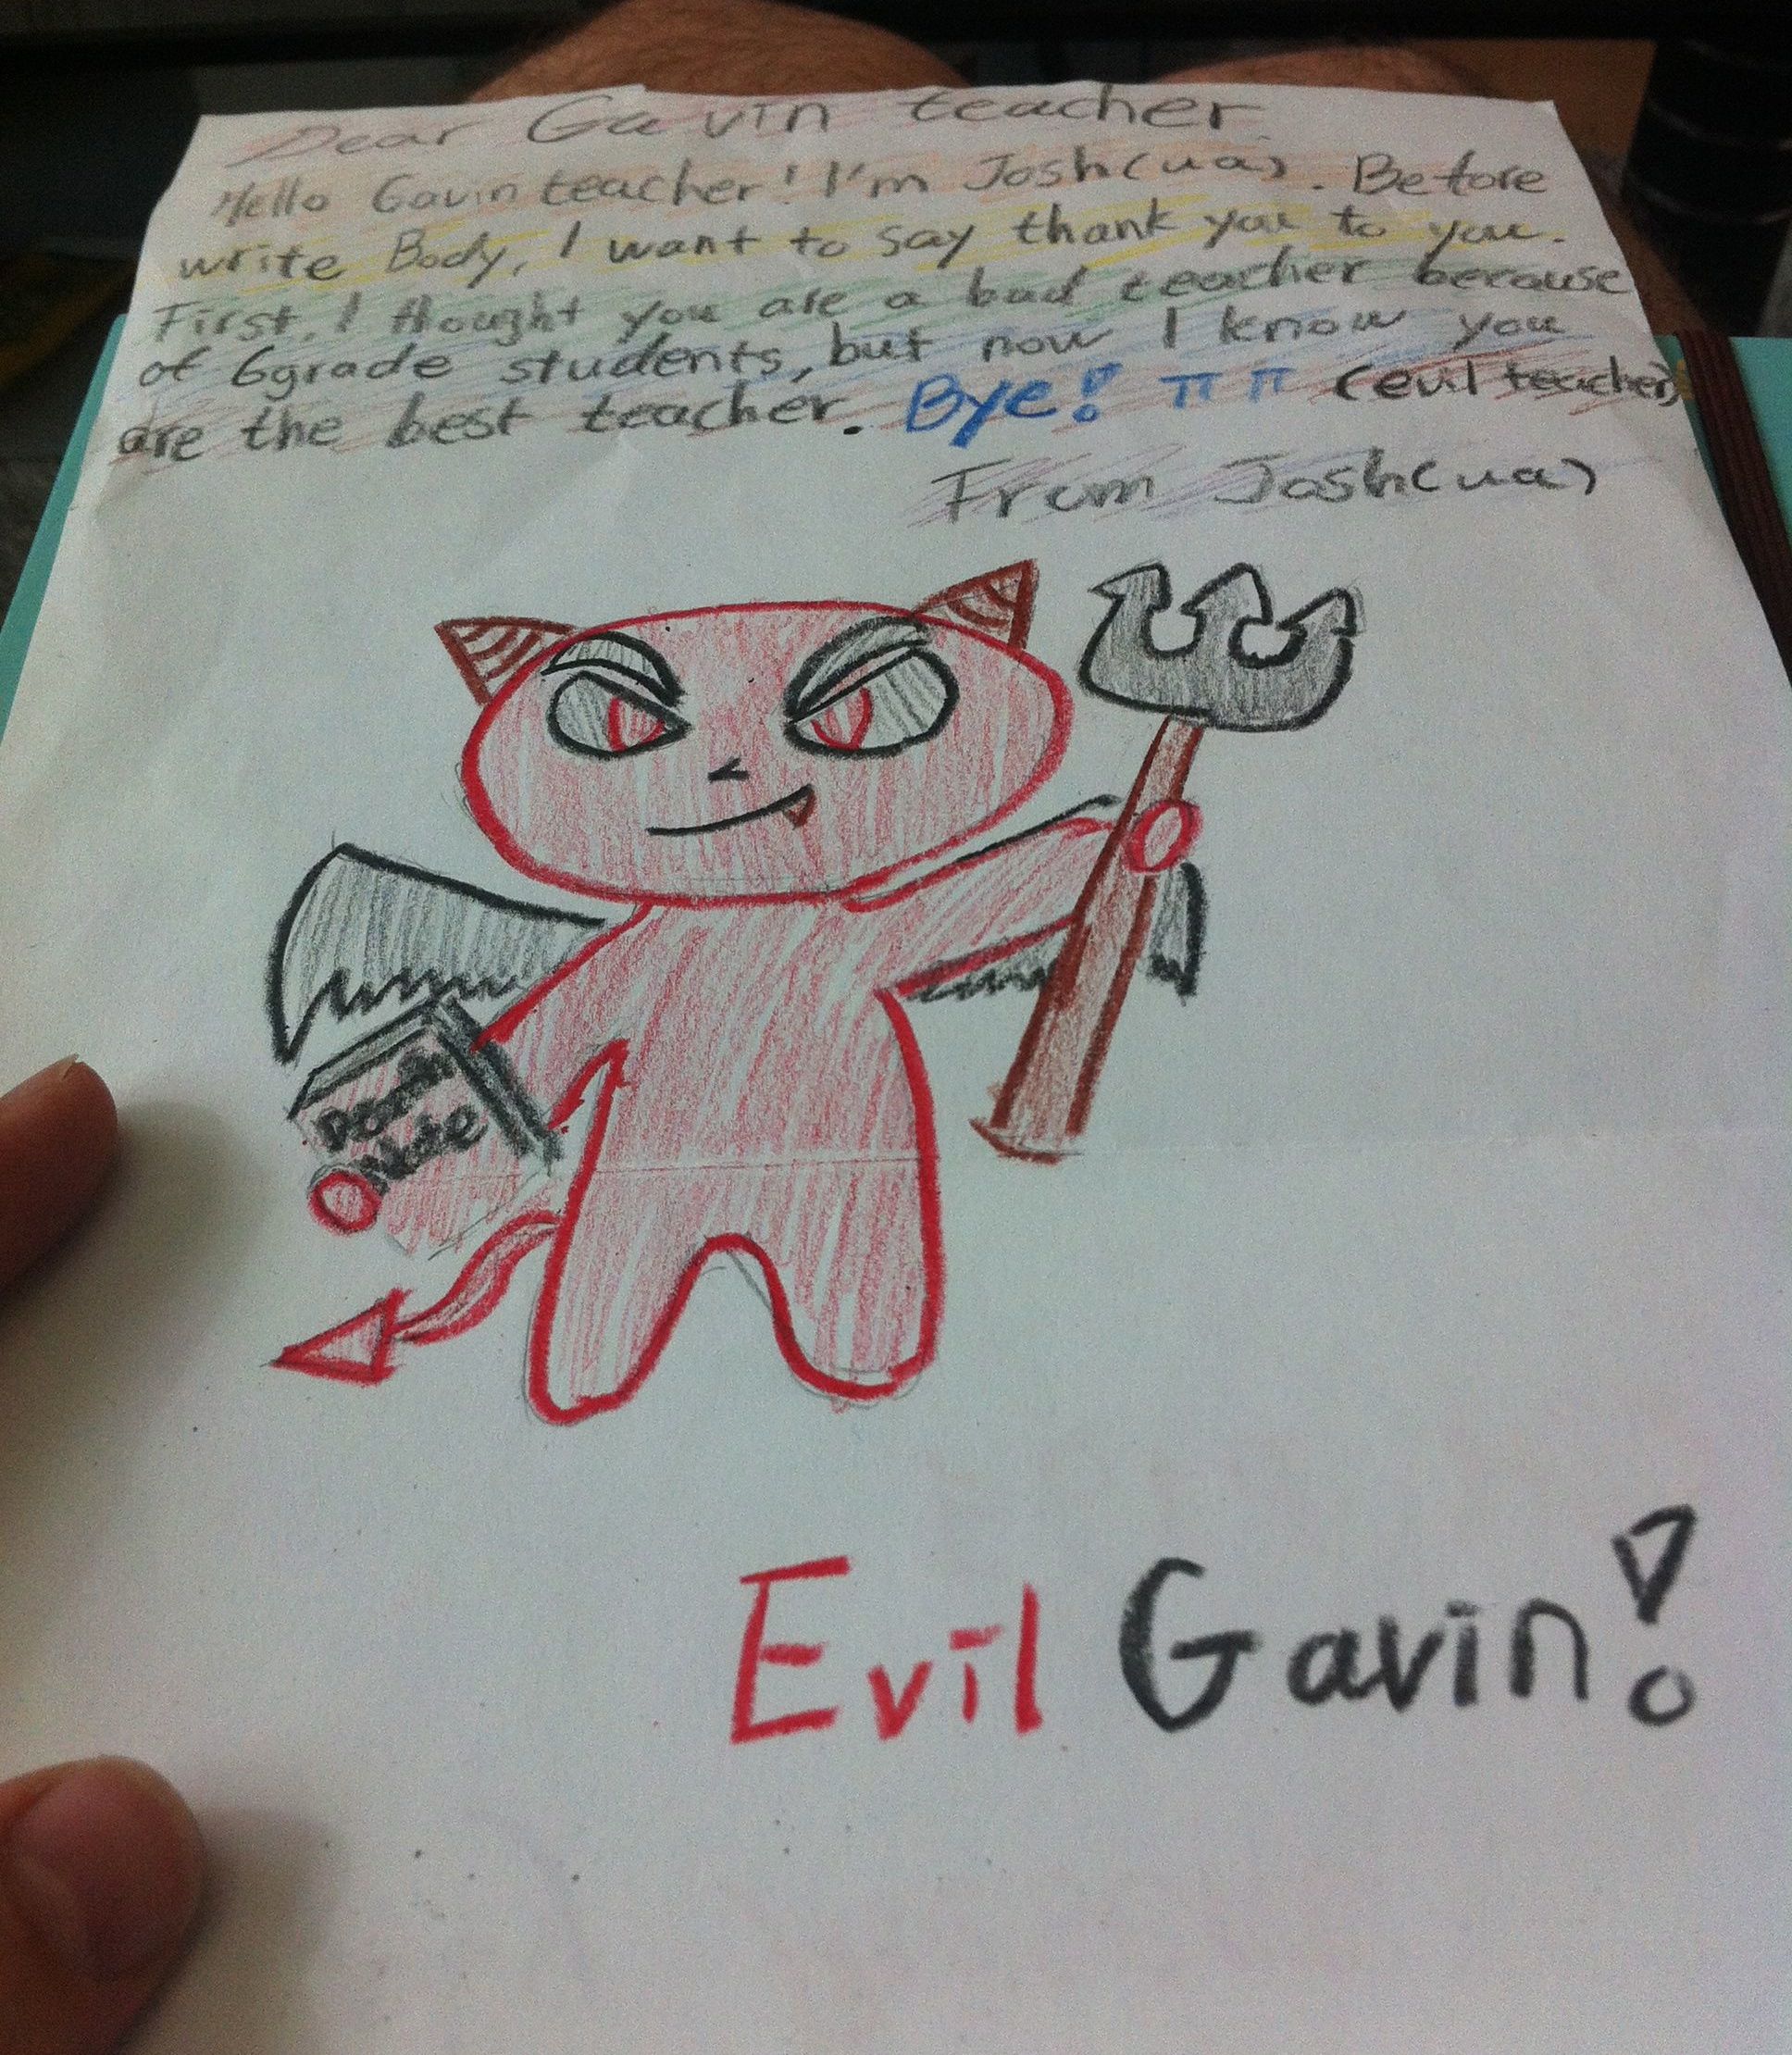 Dear Gavin teacher.
Hello Gavin teacher! I'm Josh(ua). Before
write Body, I want to say thank you to you.
First, I thought you are a bad teacher because
of 6grade students, but now I know you
are the best teacher. Bye! ㅠㅠ (evil teacher)
From Josh(ua)
Evil Gavin!